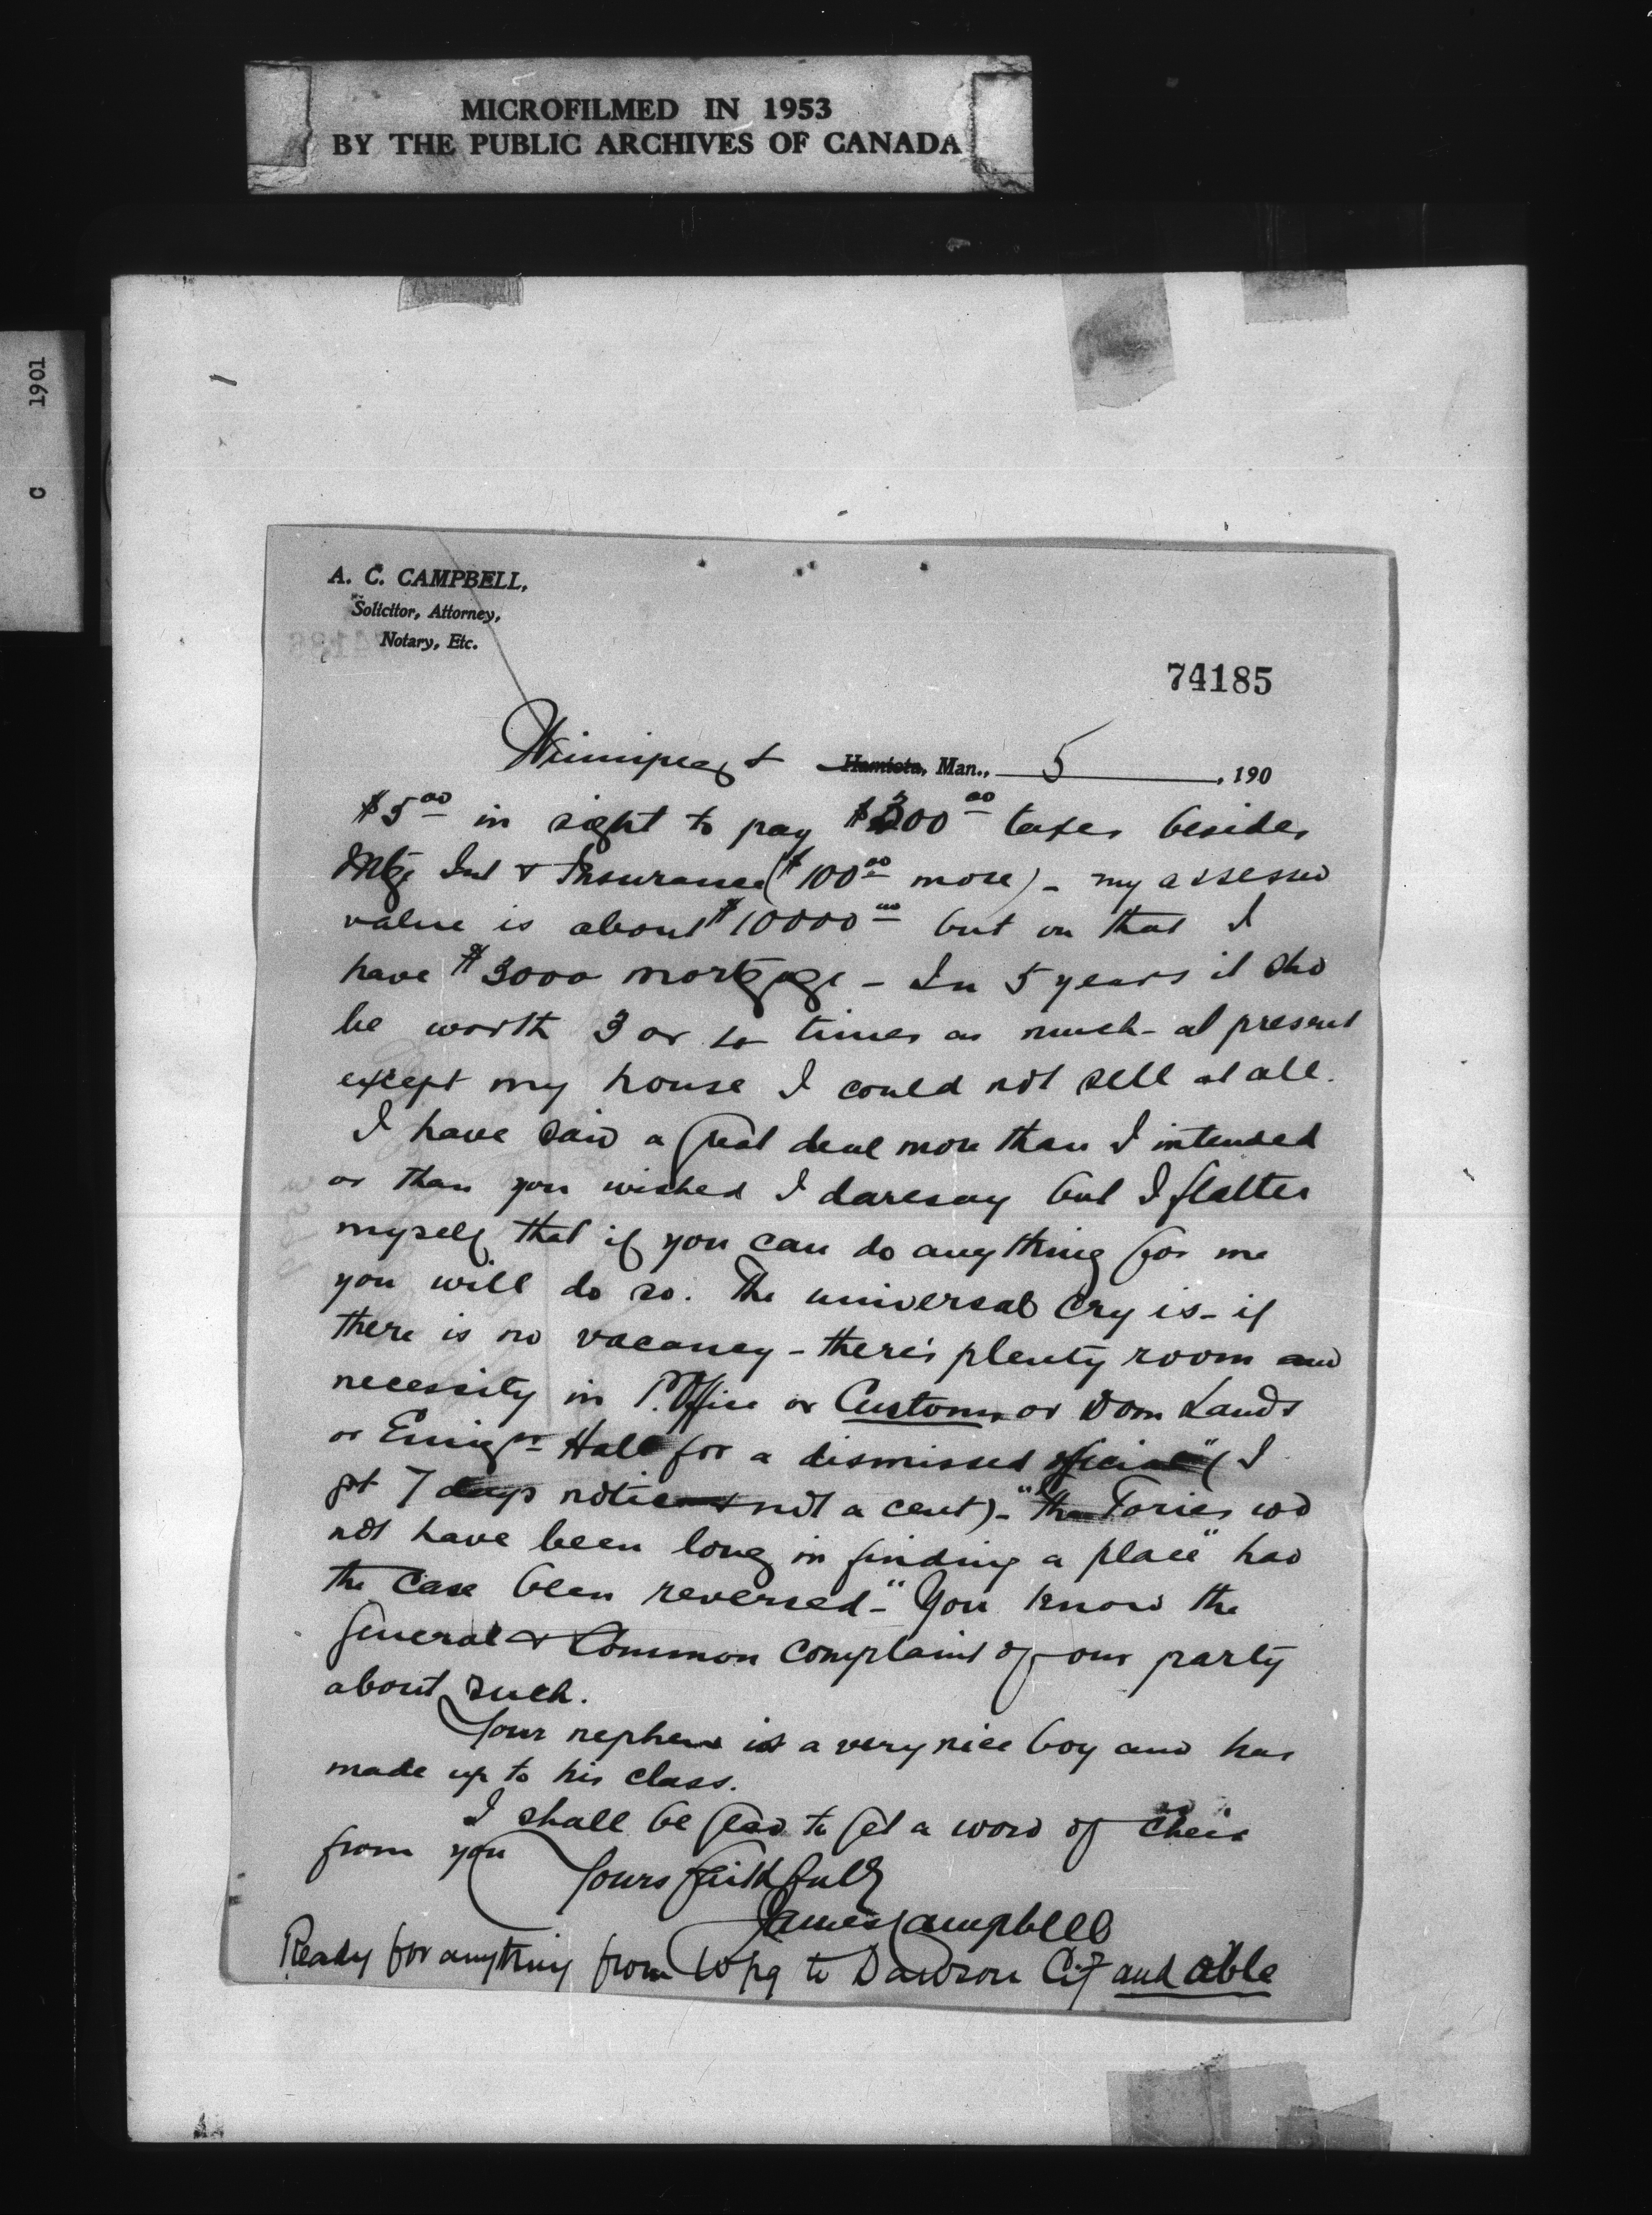 MICROFILMED IN 1953
BY THE PUBLIC ARCHIVES OF CANADA
C 1901
A. C. CAMPBELL,
Solicitor, Attorney,
Notary, Etc.
74185
Winnipeg Hamiota, Man., 5, 190
$5 00 in sight to pay $300 00 taxes besides
Mtge Int & Insurance ($100 00 more) - my assessed
value is about $10000 00 but on that I
have $3000 mortgage - In 5 years it shd
be worth 3 or 4 times as much - at present
except my house I could not sell at all.
I have said a great deal more than I intended
or than you wished I daresay but I flatter
myself that if you can do anything for me
you will do so. The universal cry is - if
there is no vacancy - there's plenty room and
necessity in P. Office or Customs or Dom Lands
or Emigrn Hall for a dismissed official" (I
got 7 days notice & not a cent) - "the Tories wd
not have been long in finding a place" had
the case been reversed - "You know the
general & common complaint of our party
about such.
Your nephew is a very nice boy and has
made up to his class.
I shall be glad to get a word of cheer
from you
Yours faithfully
James Campbell
Ready for anything from Wpg to Dawson City and able